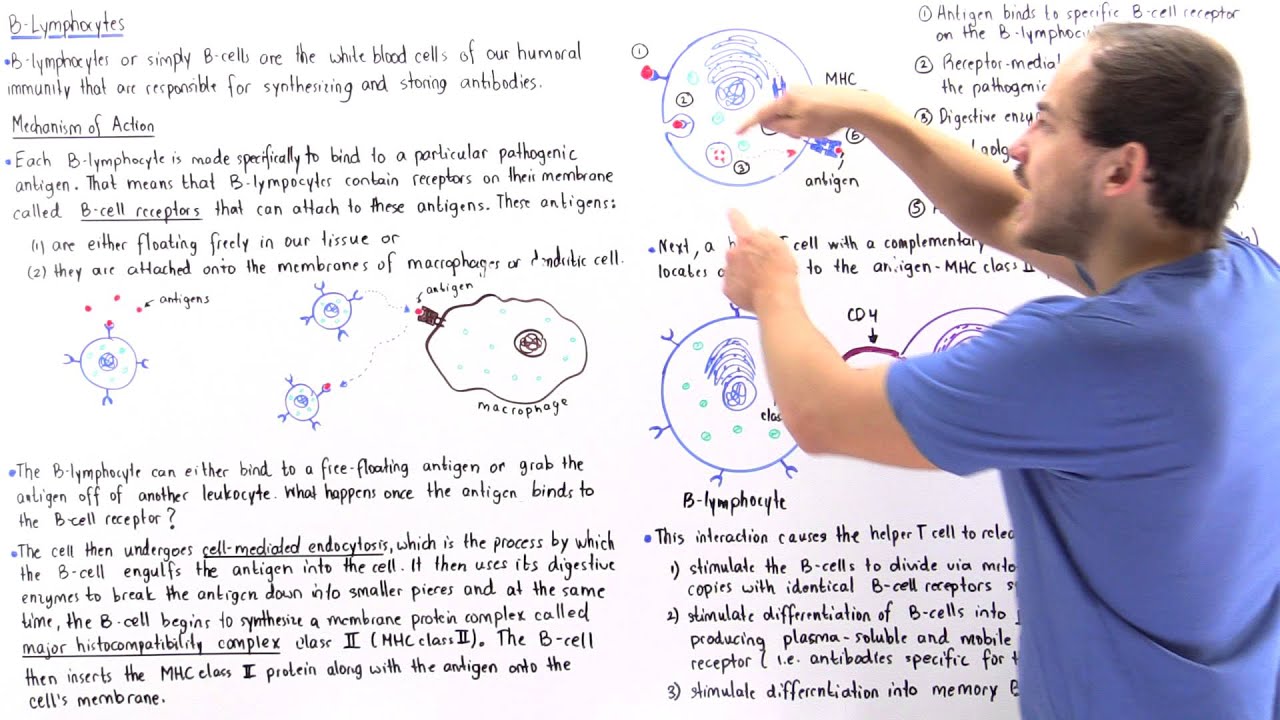 B-Lymphocytes
•B-lymphocytes or simply B-cells are the white blood cells of our humoral
immunity that are responsible for synthesizing and storing antibodies.
Mechanism of Action
•Each B-lymphocyte is made specifically to bind to a particular pathogenic
antigen. That means that B-lympocytes contain receptors on their membrane
called B-cell receptors that can attach to these antigens. These antigens:
(1) are either floating freely in our tissue or
(2) they are attached onto the membranes of macrophages or dendritic cell.
antigens
antigen
macrophage
•The B-lymphocyte can either bind to a free-floating antigen or grab the
antigen off of another leukocyte. What happens once the antigen binds to
the B-cell receptor?
•The cell then undergoes cell-mediated endocytosis, which is the process by which
the B-cell engulfs the antigen into the cell. It then uses its digestive
enzymes to break the antigen down into smaller pieces and at the same
time, the B-cell begins to synthesize a membrane protein complex called
major histocompatibility complex class II (MHC class II). The B-cell
then inserts the MHC class II protein along with the antigen onto the
cell's membrane.
① Antigen binds to specific B-cell receptor
on the B-lymphocyt
② Receptor-media
the pathogenic
③ Digestive enzy
⑤
①
②
③
MHC
antigen
•Next, a T cell with a complementary
locates to the antigen-MHC class II
CD4
B-lymphocyte
•This interaction causes the helper T cell to relea
1) stimulate the B-cells to divide via mito
copies with identical B-cell receptors
2) stimulate differentiation of B-cells into
producing plasma-soluble and mobile
receptor (i.e. antibodies specific for
3) stimulate differentiation into memory B